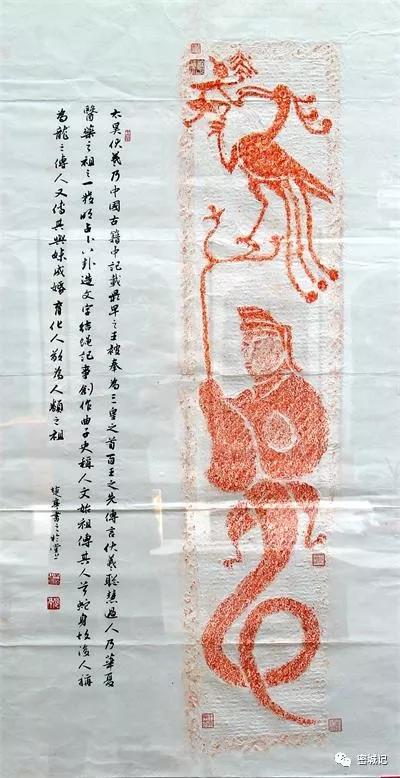 太昊伏羲乃中國古籍中記載最早之王被奉為三皇之首百王之先傳言伏羲聰慧過人乃華夏
醫藥之祖之一發明占卜八卦造文字結繩記事創作曲子史稱人文始祖傳其人首蛇身故後人稱
為龍之傳人又傳其與妹成婚育化人類為人類之祖
密城记